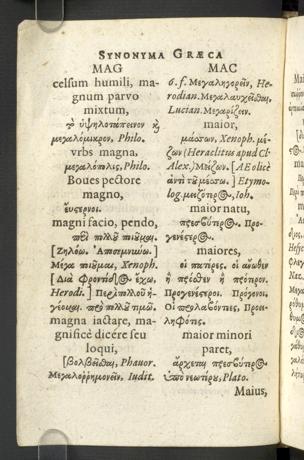 SYNONYMA GRÆCA
MAG
celsum humili, ma-
gnum parvo
mixtum,
τὸ ὑψηλοτάπεινον ἢ
μεγαλόμικρον. Philo.
vrbs magna,
μεγαλόπολις, Philo.
Boues pectore
magno,
εὔστερνοι.
magni facio, pendo,
περὶ πολλοῦ ποιοῦμαι.
[Ζηλόω. Ἀποσεμνύνω.]
Μέγα ποιοῦμαι, Xenoph.
[Διὰ φροντίδος ἔχω,
Herodi.] Περὶ πολλοῦ ἡ-
γέομαι. περὶ πολλοῦ τιμῶ.
magna iactare, ma-
gnificè dicere seu
loqui,
Phauor.
Μεγαλορρημονεῖν, Iudit.
MAC
σ. f. Μεγαληγορεῖν, He-
rodian. Μεγαλαυχεῖσθαι,
Lucian. Μεγαρίζειν.
maior,
μάσσων, Xenoph. μέ-
ζων (Heraclitus apud Cl.
Alex.) Μείζων. [AEolicè
ἀντὶ τοῦ μέσσω.] Etymo-
log. μειζότερος, Ioh.
maior natu,
πρεσβύτερος. Προ-
γενέστερος.
maiores,
οἱ πατέρες. οἱ ἄνωθεν
ἢ πρόσθεν ἢ πρότεροι.
Προγενέστεροι. Πρόγονοι.
Οἱ προλαβόντες, Προει-
ληφότες.
maior minori
paret,
ἄρχεται πρεσβύτερος
ὑπὸ νεωτέρου, Plato.
Maius,